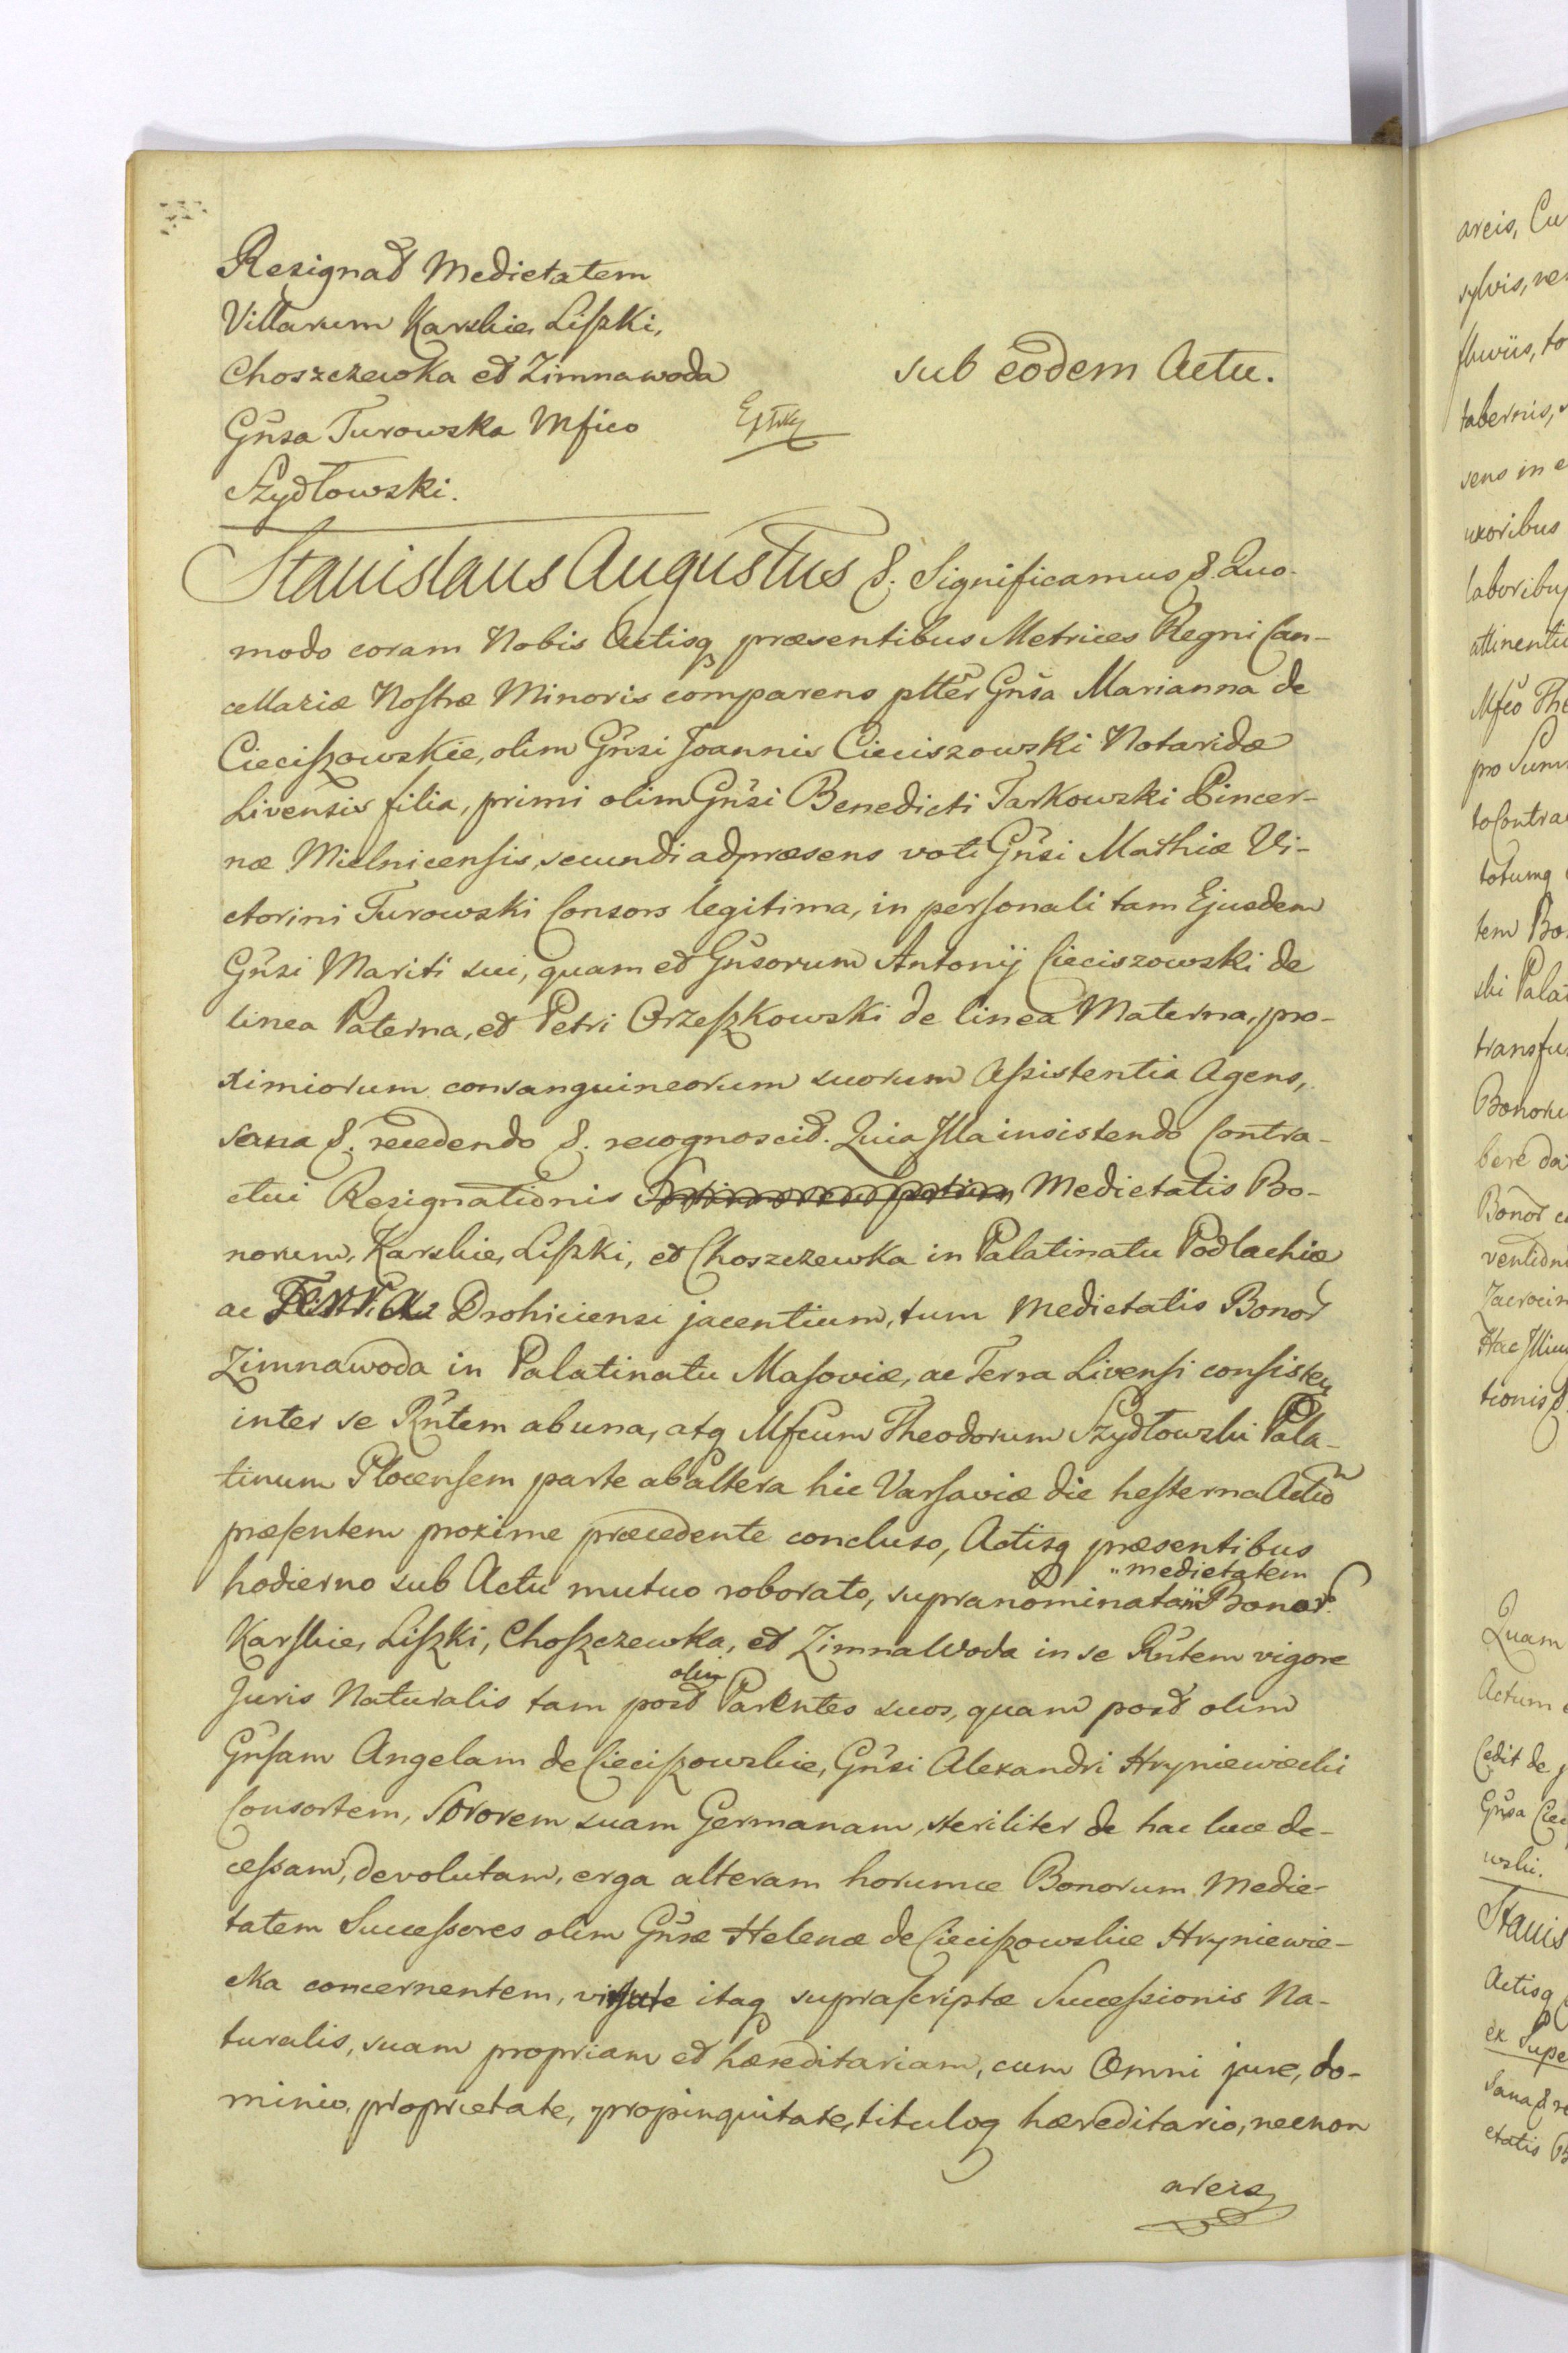 Resignat Medietatem
Villarum Karskie, Liszki,
Choszczewka et Zimnawoda
sub eodem Actu.
Gnsa Turowska Mfico
Szydłowski.
Stanislaus Augustus &. Significamus &. Quo-
modo coram Nobis Actisq praesentibus Metrices Regni Can-
cellariæ Nostræ Minoris comparens pltter Gnsa Marianna de
Cieciszowskie, olim Gnsi Joannis Cieciszowski Notaridæ
Livensis filia, primi olim Gnsi Benedicti Tarkowski Pincer-
næ Mielnicensis, secundi ad præsens voti Gnsi Mathiæ Vi-
ctorini Turowski Consors legitima, in personali tam Ejusdem
Gnsi Mariti sui, quam et Gnsorum Antonij Cieciszowski de
linea Paterna, et Petri Orzeszkowski de linea Materna, pro-
ximiorum consanguineorum suorum Assistentia Agens,
sana &. recedendo &. recognoscit. Quia Illa insistendo Contra-
ctui Resignationis Medietatis Bo-
norum, Karskie, Liszki, et Choszczewka in Palatinatu Podlachiæ
ac Terra Drohiciensi jacentium, tum Medietatis Bonor
Zimnawoda in Palatinatu Masoviæ, ac Terra Livensi consisten
inter se Rntem ab una, atq Mficum Theodorum Szydłowski Pala-
tinum Plocensem parte ab altera hic Varsaviæ die hesterna Actum
præsentem proxime præcedente concluso, Actisq præsentibus
hodierno sub Actu mutuo roborato, supranominatam "medietatem Bonor.
Karskie, Liszki, Choszczewka, et Zimna Woda in se Rntem vigore
Juris Naturalis tam post olim Parentes suos, quam post olim
Gnsam Angelam de Cieciszowskie, Gnsi Alexandri Hryniewiecki
Consortem, Sororem suam Germanam, steriliter de hac luce de-
cessam, devolutam, erga alteram horumce Bonorum Medie-
tatem Successores olim Gnsæ Helenæ de Cieciszowskie Hryniewie-
cka concernentem, virtute itaq suprascriptæ Successionis Na-
turalis, suam propriam et hæreditariam, cum Omni jure, do-
minio, proprietate, propinquitate, tituloq hæreditario, necnon
areis
areis, Cu
sylvis, ne
fluviis, to
tabernis,
sens in e
uxoribus
laboribus
attinentii
Mfco The
pro Sum
to Contra
totumq
tem Bo
ski Pala
transfu
Bonoru
bere da
Bonor
Zacrocim
Hac Illiu
tionis &
Quam
Actum
Cedit de
Gnsa Cie
wski.
Stanis
Actisq
ex Supe
Sana & re
etatis B